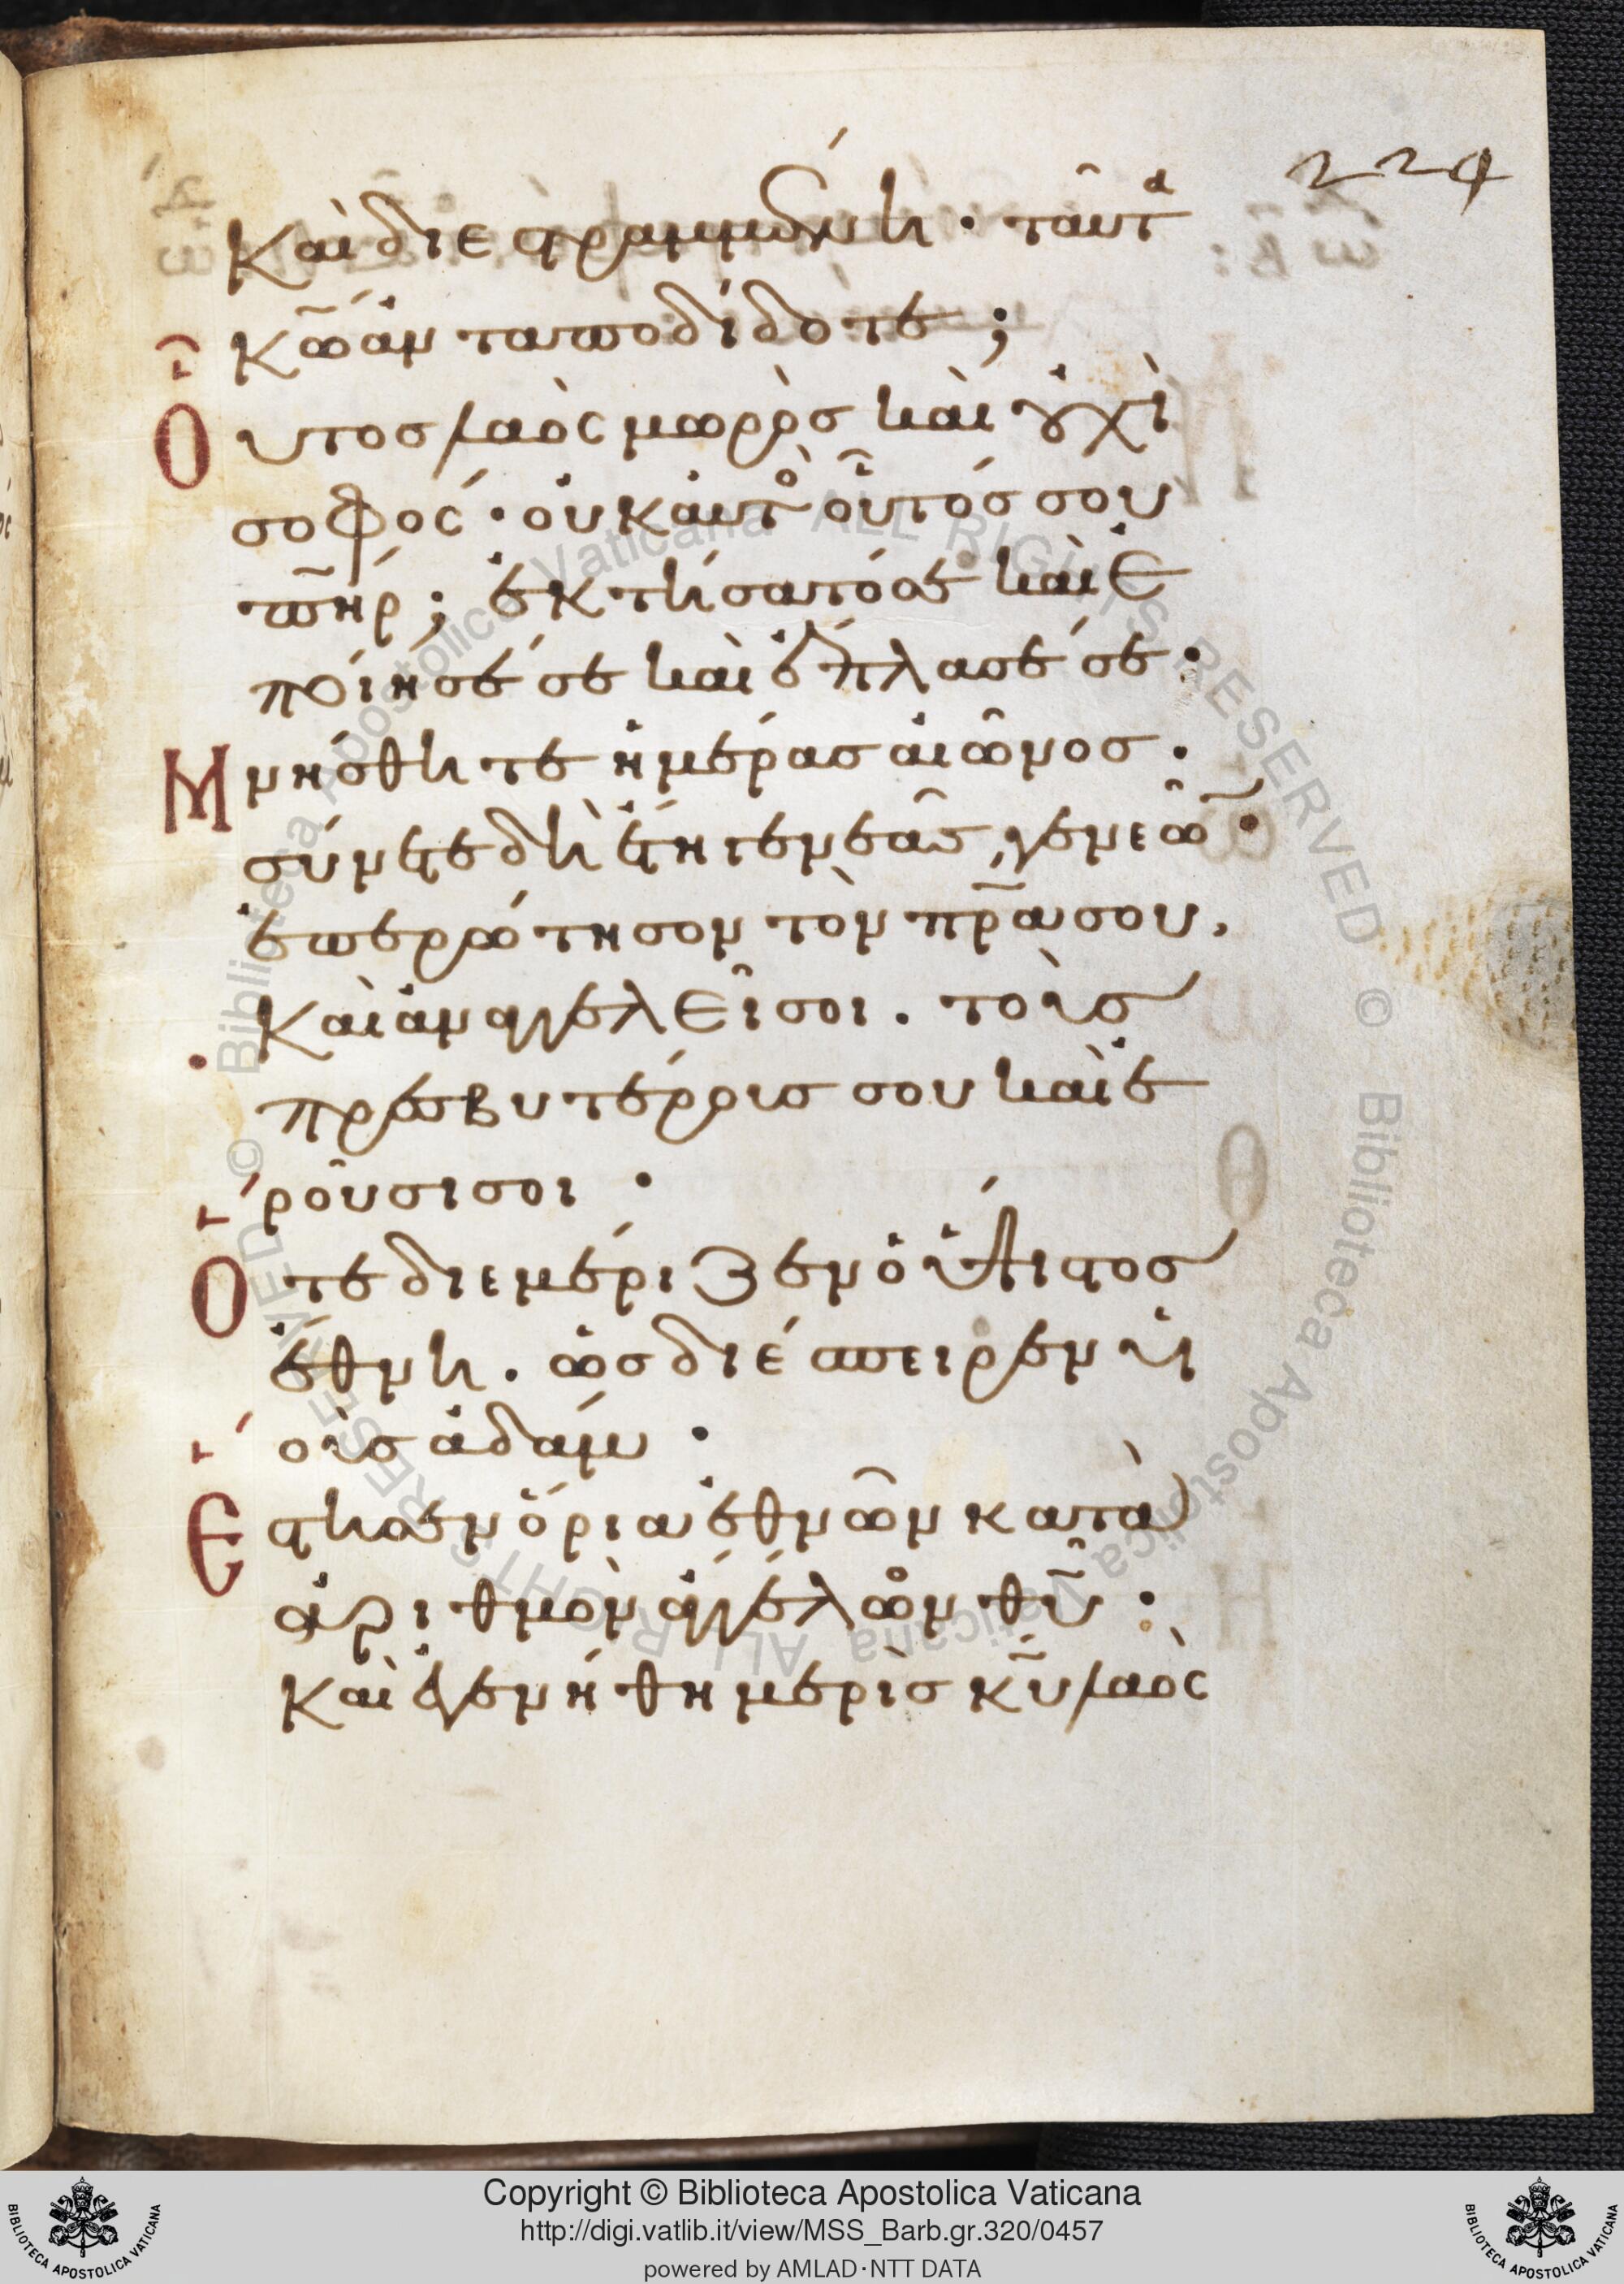 224
Καὶ διεστραμμένη · ταῦτα
Κ̅ω̅ ἀνταποδίδοτε ;
Οὗτος λαὸς μωρὸς καὶ οὐχὶ
σοφός · οὐκ αὐτὸς οὗτός σου
π̅η̅ρ ; ἐκτήσατό σε καὶ ἐ
ποίησέ σε καὶ ἔπλασέ σε ·
Μνήσθητε ἡμέρας αἰῶνος ·
σύνετε δὴ ἔτη γενεᾶς γενεῶν ·
ἐπερώτησον τὸν π̅ρ̅α σου,
Καὶ ἀναγγελεῖ σοι . τοὺς
πρεσβυτέρους σου καὶ ἐ
ροῦσί σοι ·
Ὅτε διεμέριζεν ὁ ὕψιστος
ἔθνη . ὡς διέσπειρεν υἱ
οὺς ἀδάμ ·
Ἔστησεν ὅρια ἐθνῶν κατὰ
ἀριθμὸν ἀγγέλων θ̅υ̅ :
Καὶ ἐγενήθη μερὶς κ̅υ̅ λαὸς
© Biblioteca Apostolica Vaticana ALL RIGHTS RESERVED © Biblioteca Apostolica Vaticana ALL RIGHTS RESERVED
BIBLIOTECA APOSTOLICA VATICANA
Copyright © Biblioteca Apostolica Vaticana
http://digi.vatlib.it/view/MSS_Barb.gr.320/0457
powered by AMLAD·NTT DATA
BIBLIOTECA APOSTOLICA VATICANA